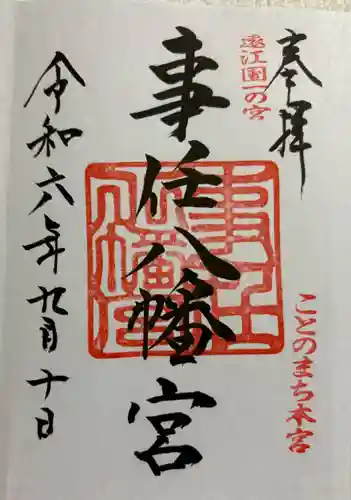 奉拝
遠江國一の宮
ことのまち本宮
事任八幡宮
令和六年九月十日